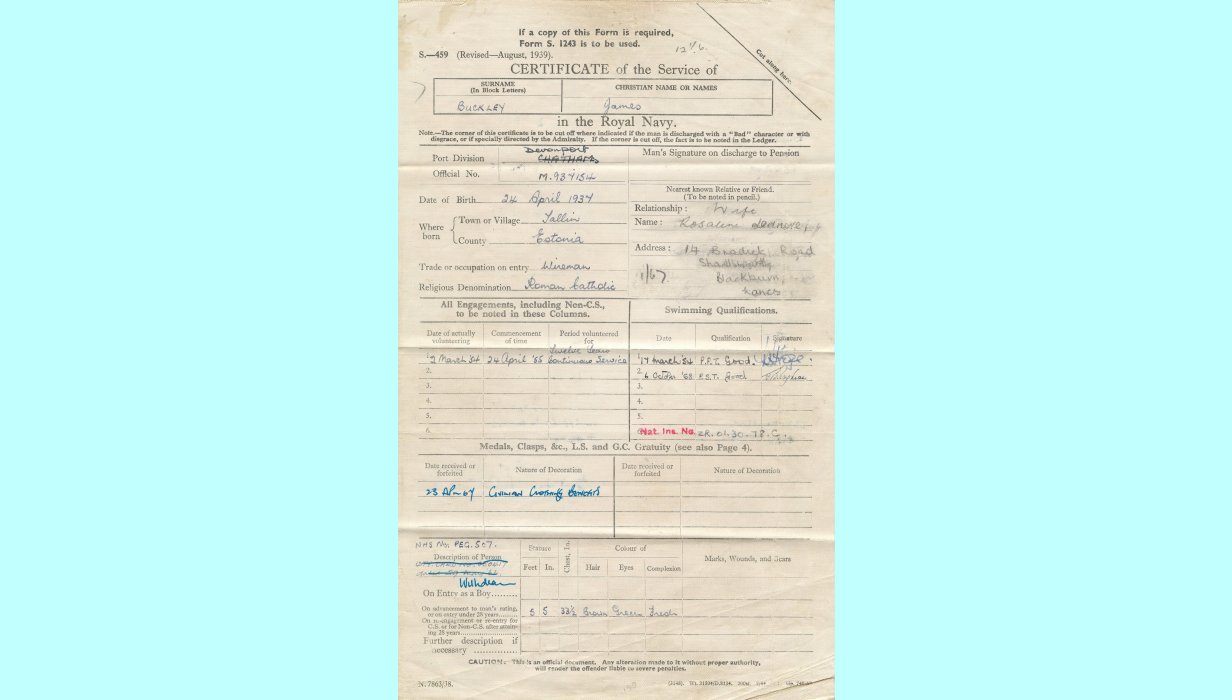 If a copy of this Form is required,
Form S. 1243 is to be used.
S.—459 (Revised—August, 1939).
Cut along here.
CERTIFICATE of the Service of
SURNAME
(In Block Letters)
CHRISTIAN NAME OR NAMES
BUCKLEY
James
in the Royal Navy.
Note.—The corner of this certificate is to be cut off where indicated if the man is discharged with a "Bad" character or with
disgrace, or if specially directed by the Admiralty. If the corner is cut off, the fact is to be noted in the Ledger.
Devonport
Port Division CHATHAM
Man's Signature on discharge to Pension
Official No. M.934154
Nearest known Relative or Friend.
(To be noted in pencil.)
Date of Birth 24 April 1937
Relationship: Wife
Where born
Town or Village Tallin
Name:
County Estonia
Address: 14 Road
Blackburn,
Lancs
1/67
Trade or occupation on entry Wireman
Religious Denomination Roman Catholic
All Engagements, including Non-C.S.,
to be noted in these Columns.
Swimming Qualifications.
Date of actually volunteering
Commencement of time
Period volunteered for
Date
Qualification
Signature
Twelve Years
1. 2 March '54 24 April '55 Continuous Service
1. 17 March '54 P.P.T. Good.
2.
2. 6 October P.S.T. Good
3.
3.
4.
4.
5.
5.
6.
Nat. Ins. No. ZR. 01. 30. 78. C.
Medals, Clasps, &c., L.S. and G.C. Gratuity (see also Page 4).
Date received or forfeited
Nature of Decoration
Date received or forfeited
Nature of Decoration
23 Apr 67 Civilian Clothing Benefits
NHS No. PEG. 507.
Description of Person
Withdrawn
Stature
Feet
In.
Chest, In.
Colour of
Hair
Eyes
Complexion
Marks, Wounds, and Scars
On Entry as a Boy
On advancement to man's rating,
or on entry under 28 years
5 5 33½ Brown Green Fresh
On re-engagement or re-entry for
C.S. or for Non-C.S. after attain-
ing 28 years
Further description if
necessary
CAUTION. This is an official document. Any alteration made to it without proper authority,
will render the offender liable to severe penalties.
N. 7863/38.